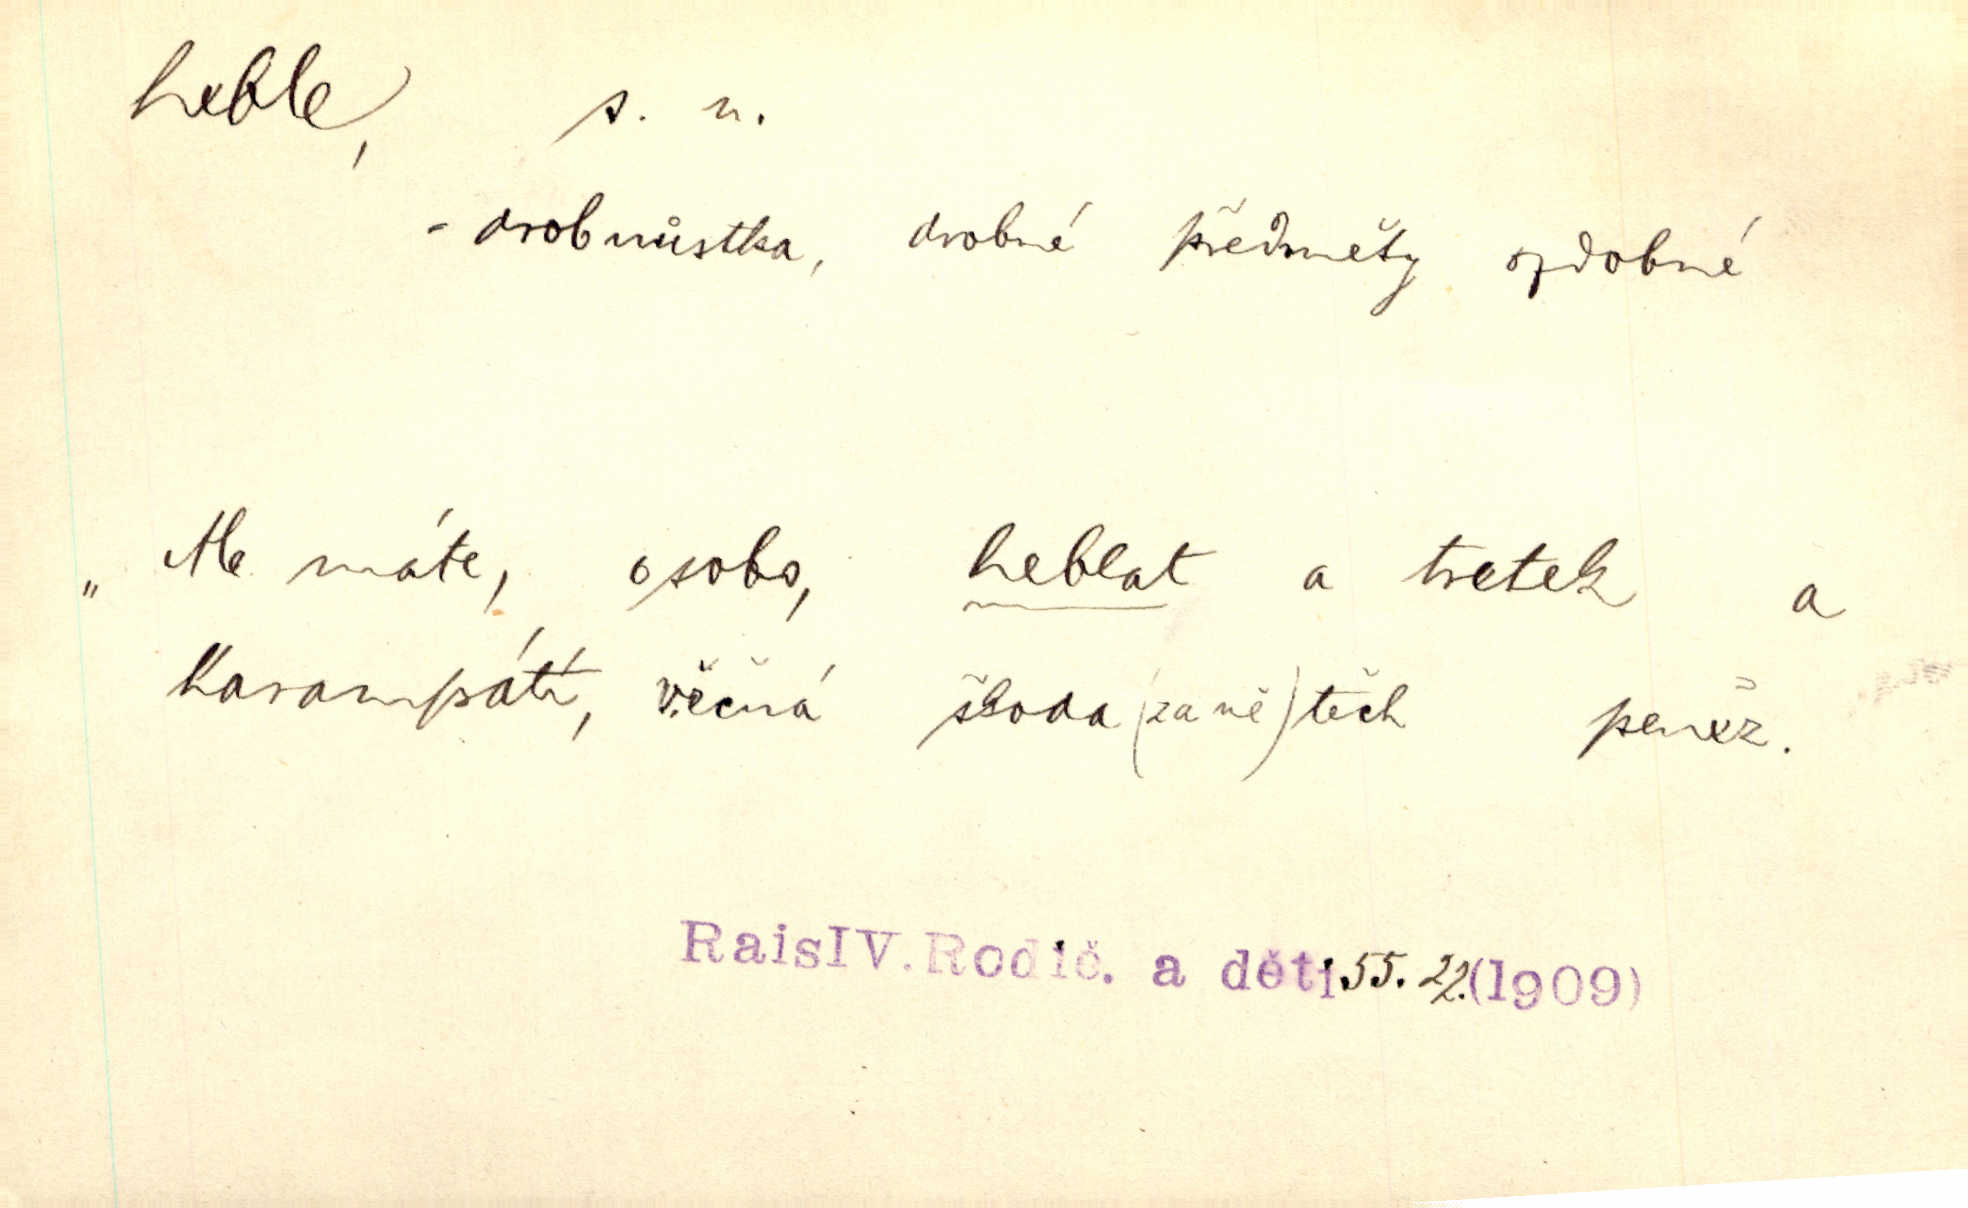 heble, s. n.
- drobnůstka, drobné předměty ozdobné
„Ale máte, osobo, heblat a tretek a
karampátí, věčná škoda (za ně) těch peněz.
RaisIV.Rodič. a děti.55.22.(1909)